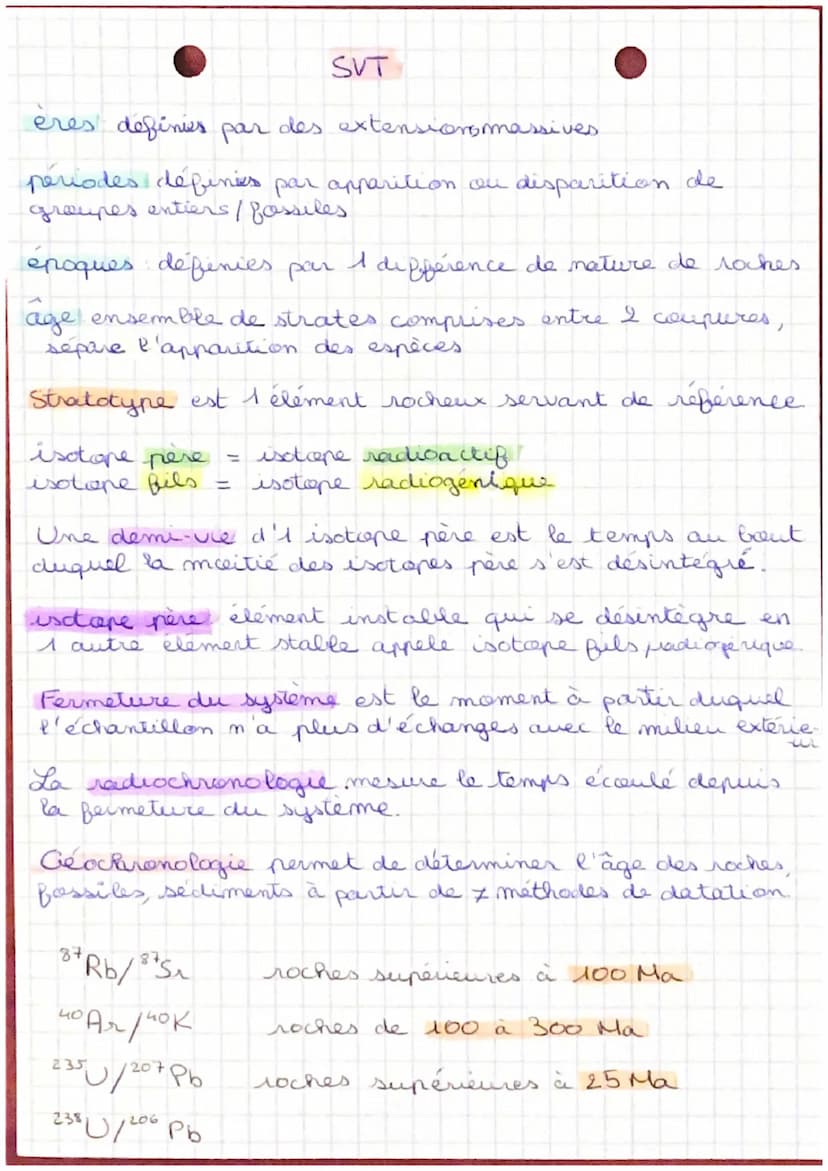 SVT
ères définies par des extensions massives
périodes définies par apparition ou disparition de
groupes entiers / fossiles
époques : définies par 1 différence de nature de roches
âge ensemble de strates comprises entre 2 coupures,
sépare l'apparition des espèces
Stratotype est 1 élément rocheux servant de référence
isotope père = isotope radioactif
isotope fils = isotope radiogénique
Une demi-vie d'1 isotope père est le temps au bout
duquel la moitié des isotopes père s'est désintégré.
isotope père élément instable qui se désintègre en
1 autre élément stable appelé isotope fils, radiogénique.
Fermeture du système est le moment à partir duquel
l'échantillon n'a plus d'échanges avec le milieu extérie-
ur
La radiochronologie mesure le temps écoulé depuis
la fermeture du système.
Géochronologie permet de déterminer l'âge des roches,
fossiles, sédiments à partir de ≠ méthodes de datation.
⁸⁷Rb/⁸⁷Sr roches supérieures à 100 Ma
⁴⁰Ar/⁴⁰K roches de 100 à 300 Ma
²³⁵U/²⁰⁷Pb roches supérieures à 25 Ma
²³⁸U/²⁰⁶Pb